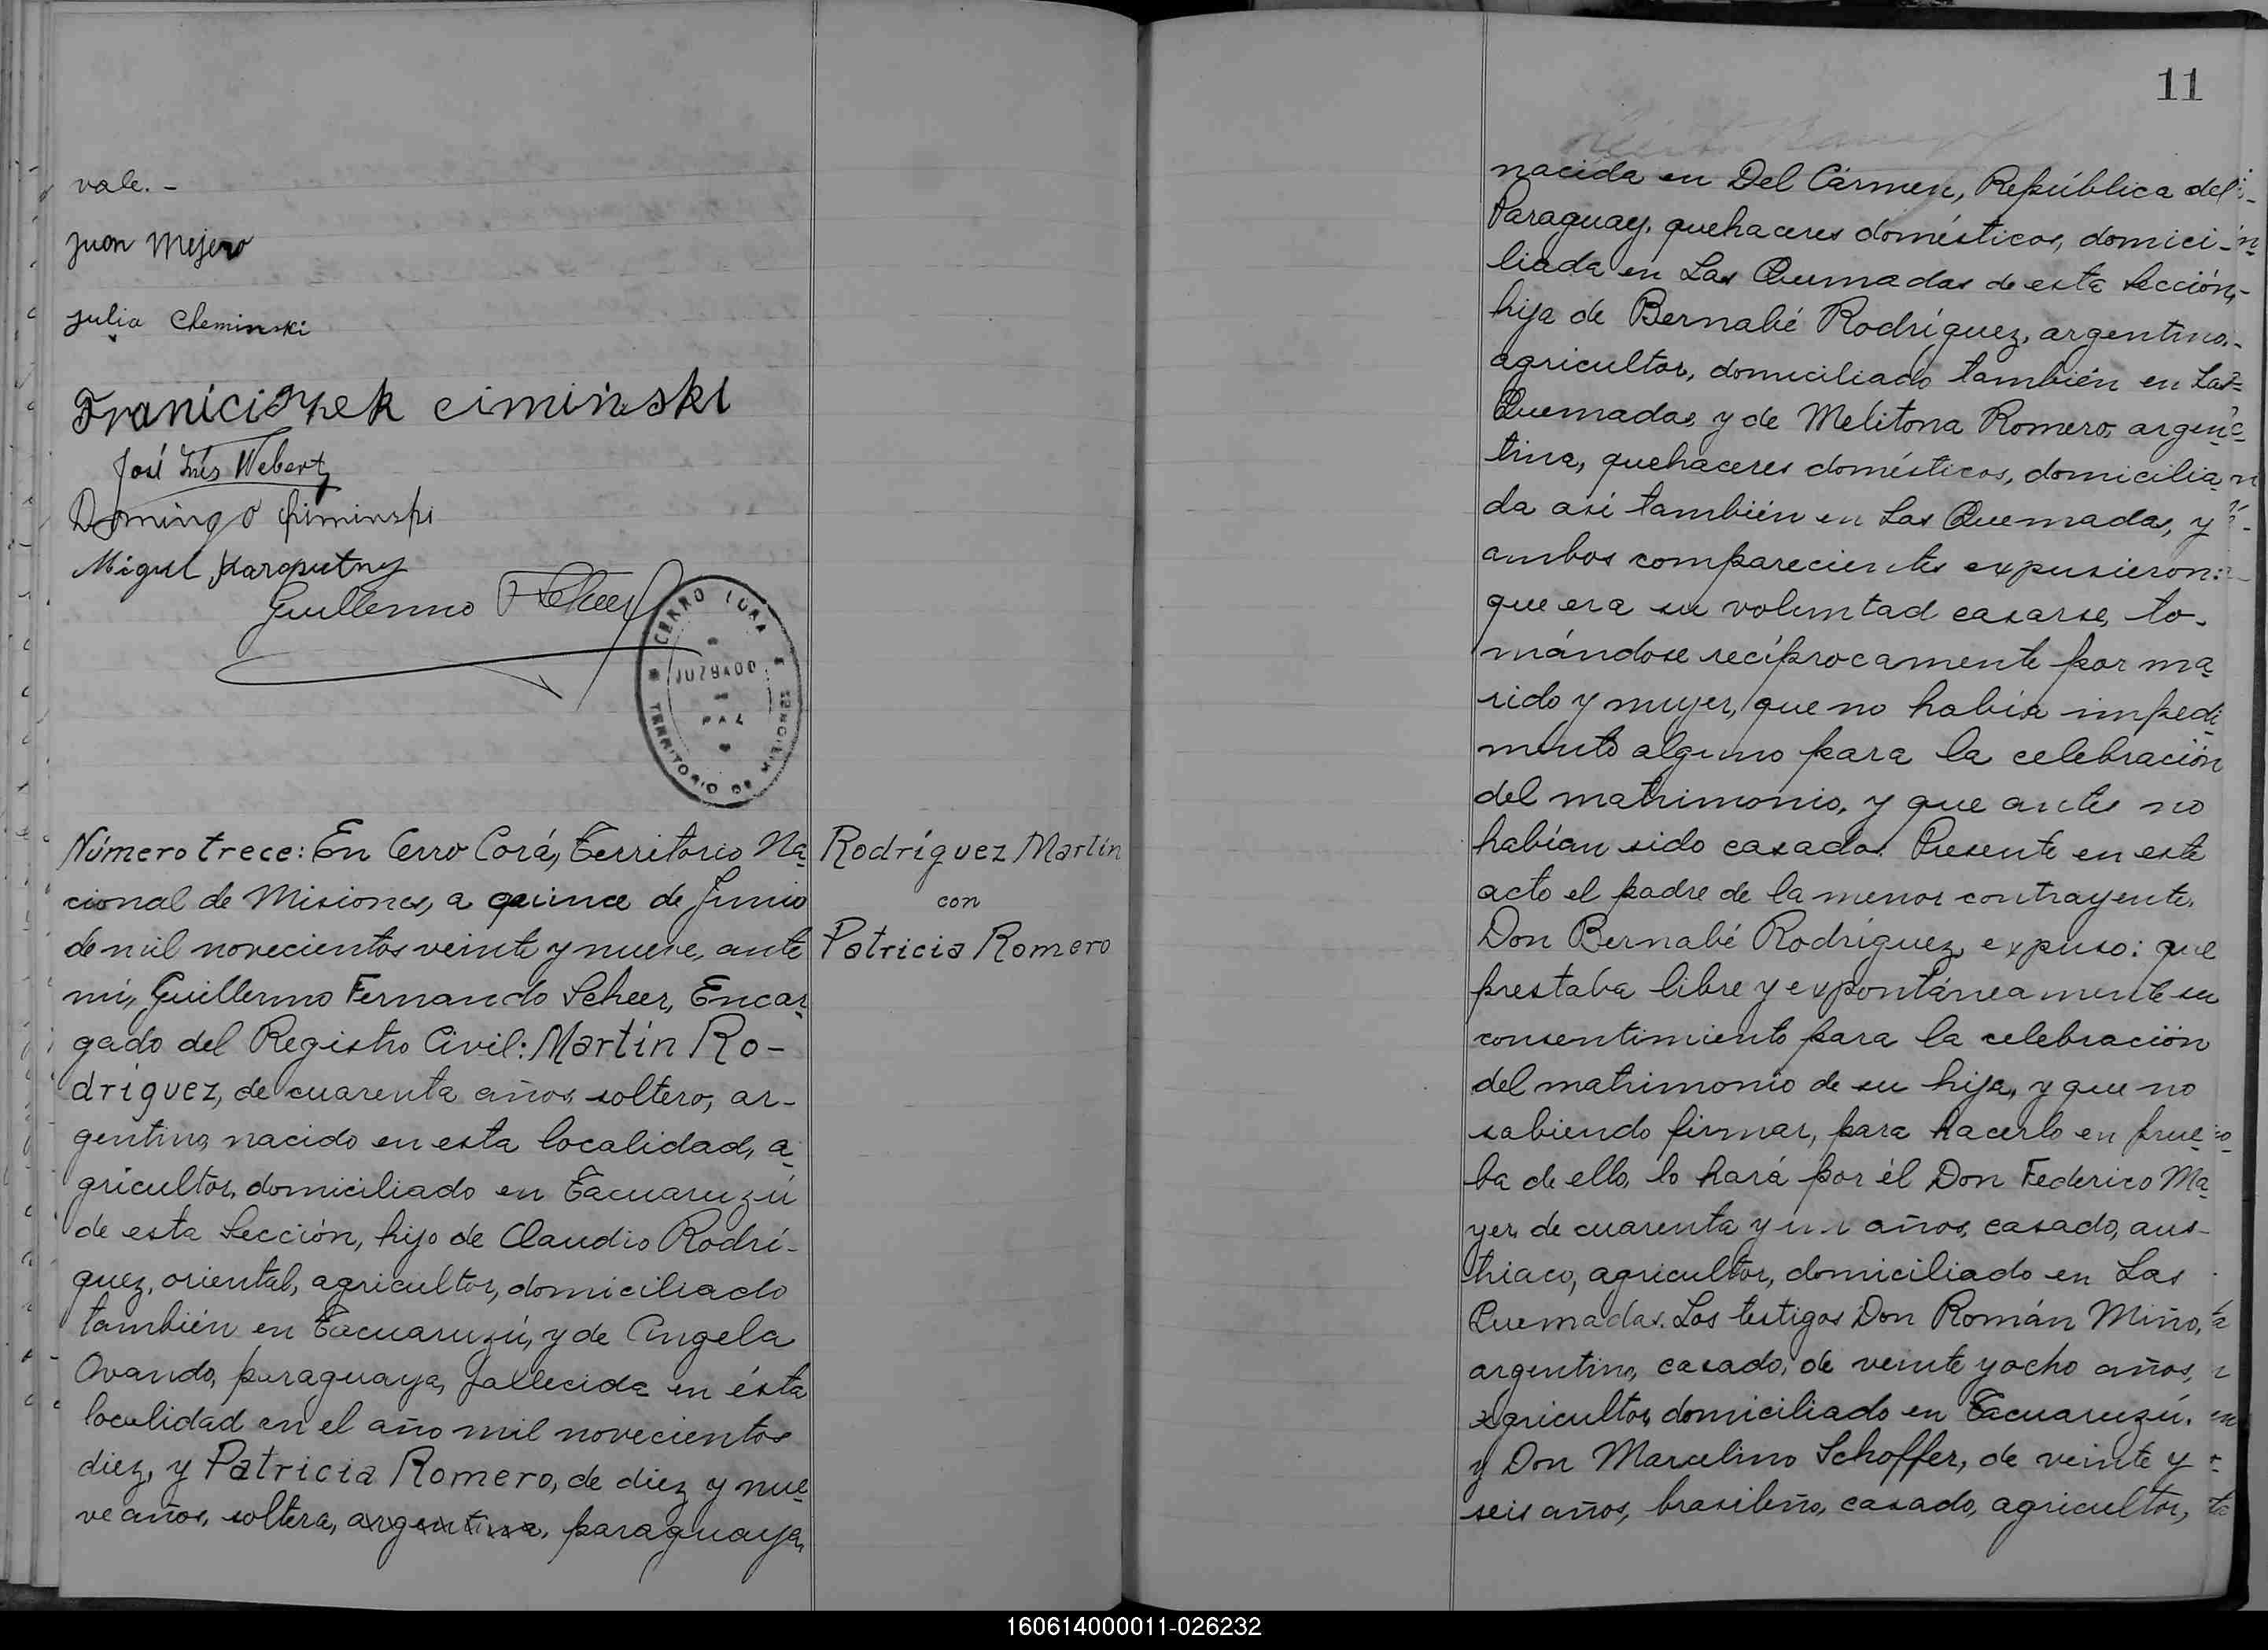 vale. -
Juan Mejero
Julia Cheminski
Franiciszek ciminski
José Inés Webert
Domingo Ciminski
Miguel Karaputny
Guillermo F Scheer
CERRO CORA
JUZGADO
DE
PAZ
TERRITORIO DE MISIONES
Número trece: En Cerro Corá, Territorio Na
cional de Misiones, a quince de Junio
de mil novecientos veinte y nueve, ante
mí, Guillermo Fernando Scheer, Encar
gado del Registro Civil: Martín Ro-
dríguez, de cuarenta años, soltero, ar-
gentino, nacido en esta localidad, a
gricultor, domiciliado en Tacuaruzú
de esta Sección, hijo de Claudio Rodrí-
guez, oriental, agricultor, domiciliado
también en Tacuaruzú, y de Angela
Ovando, paraguaya, fallecida en ésta
localidad en el año mil novecientos
diez, y Patricia Romero, de diez y nue
ve años, soltera, argentina, paraguaya,
Rodríguez Martín
con
Patricia Romero
11
nacida en Del Cármen, República del
Paraguay, quehaceres domésticos, domici-
liada en Las Quemadas de esta Sección,
hija de Bernabé Rodríguez, argentino,
agricultor, domiciliado también en Las
Quemadas, y de Melitona Romero, argen
tina, quehaceres domésticos, domicilia
da así también en Las Quemadas, y
ambos comparecientes expusieron:
que era su voluntad casarse, to-
mándose recíprocamente por ma
rido y mujer, que no había impedi
mento alguno para la celebración
del matrimonio, y que antes no
habían sido casados. Presente en este
acto el padre de la menor contrayente,
Don Bernabé Rodríguez, expuso: que
prestaba libre y expontáneamente su
consentimiento para la celebración
del matrimonio de su hija, y que no
sabiendo firmar, para hacerlo en prue
ba de ello, lo hará por él Don Federico Ma
yer, de cuarenta y un años, casado, aus-
triaco, agricultor, domiciliado en Las
Quemadas. Los testigos Don Román Miño,
argentino, casado, de veinte y ocho años,
agricultor, domiciliado en Tacuaruzú,
y Don Marcelino Schoffer, de veinte y
seis años, brasileño, casado, agricultor,
160614000011-026232